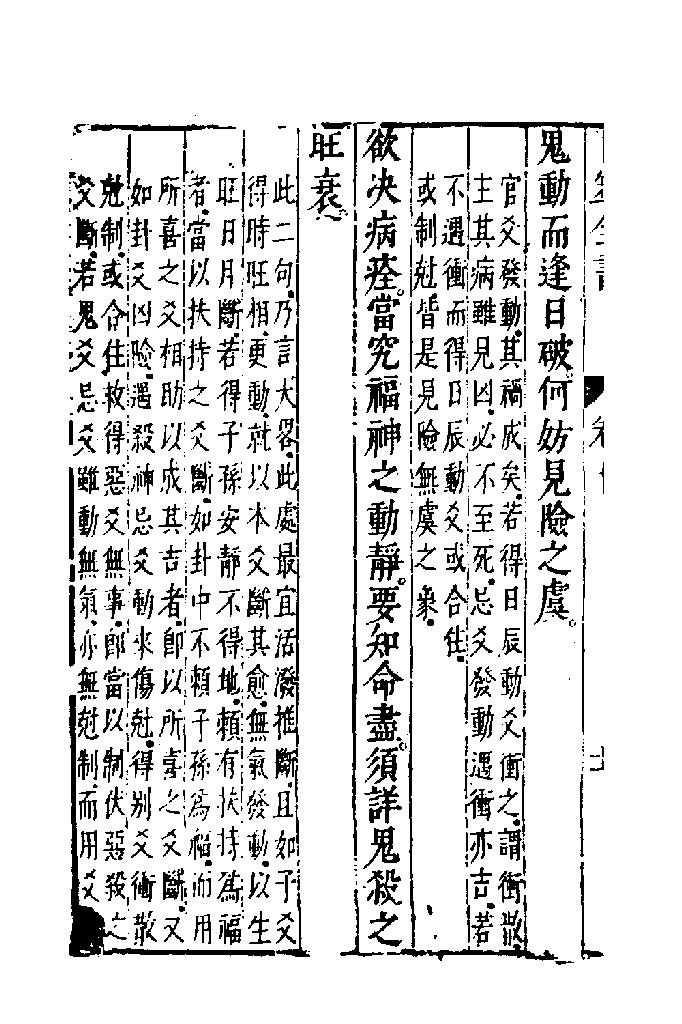 鬼動而逢日破何妨見險之虞
官爻發動其禍成矣若得日辰動爻衝之謂衝散
主其病雖見凶必不至死忌爻發動遇衝亦吉若
不遇衝而得日辰動爻或合住
或制尅皆是見險無虞之象
欲决病痊當究福神之動靜要知命盡須詳鬼殺之
旺衰
此二句乃言大畧此處最宜活潑推斷且如子爻
得時旺相更動就以本爻斷其愈無氣發動以生
旺日月斷若得子孫安靜不得地頼有扶持爲福
者當以扶持之爻斷如卦中不頼子孫爲福而用
所喜之爻相助以成其吉者卽以所喜之爻斷又
如卦爻凶險遇殺神忌爻動來傷尅得別爻衝散
尅制或合住救得惡爻無事卽當以制伏惡殺之
爻斷若鬼爻忌爻雖動無氣亦無尅制而用爻